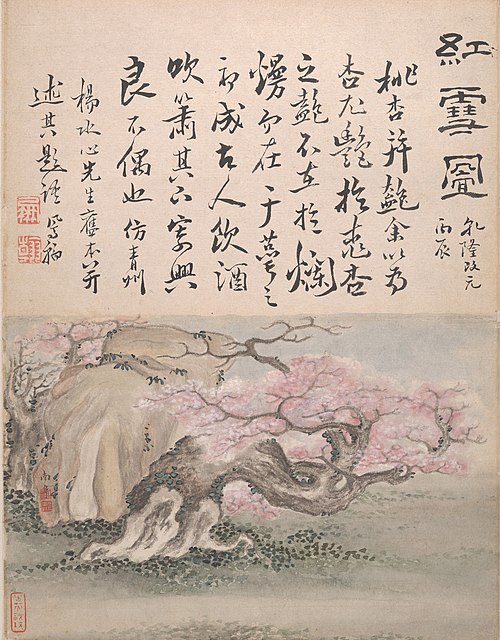 紅雪圖
乾隆改元
丙辰
桃杏并艷余以為
杏尤艷於桃杏
之艷不在於爛
熳而在于之
初成古人飲酒
吹簫其下寄興
良不偶也仿青州
楊水心先生舊本并
述其題語